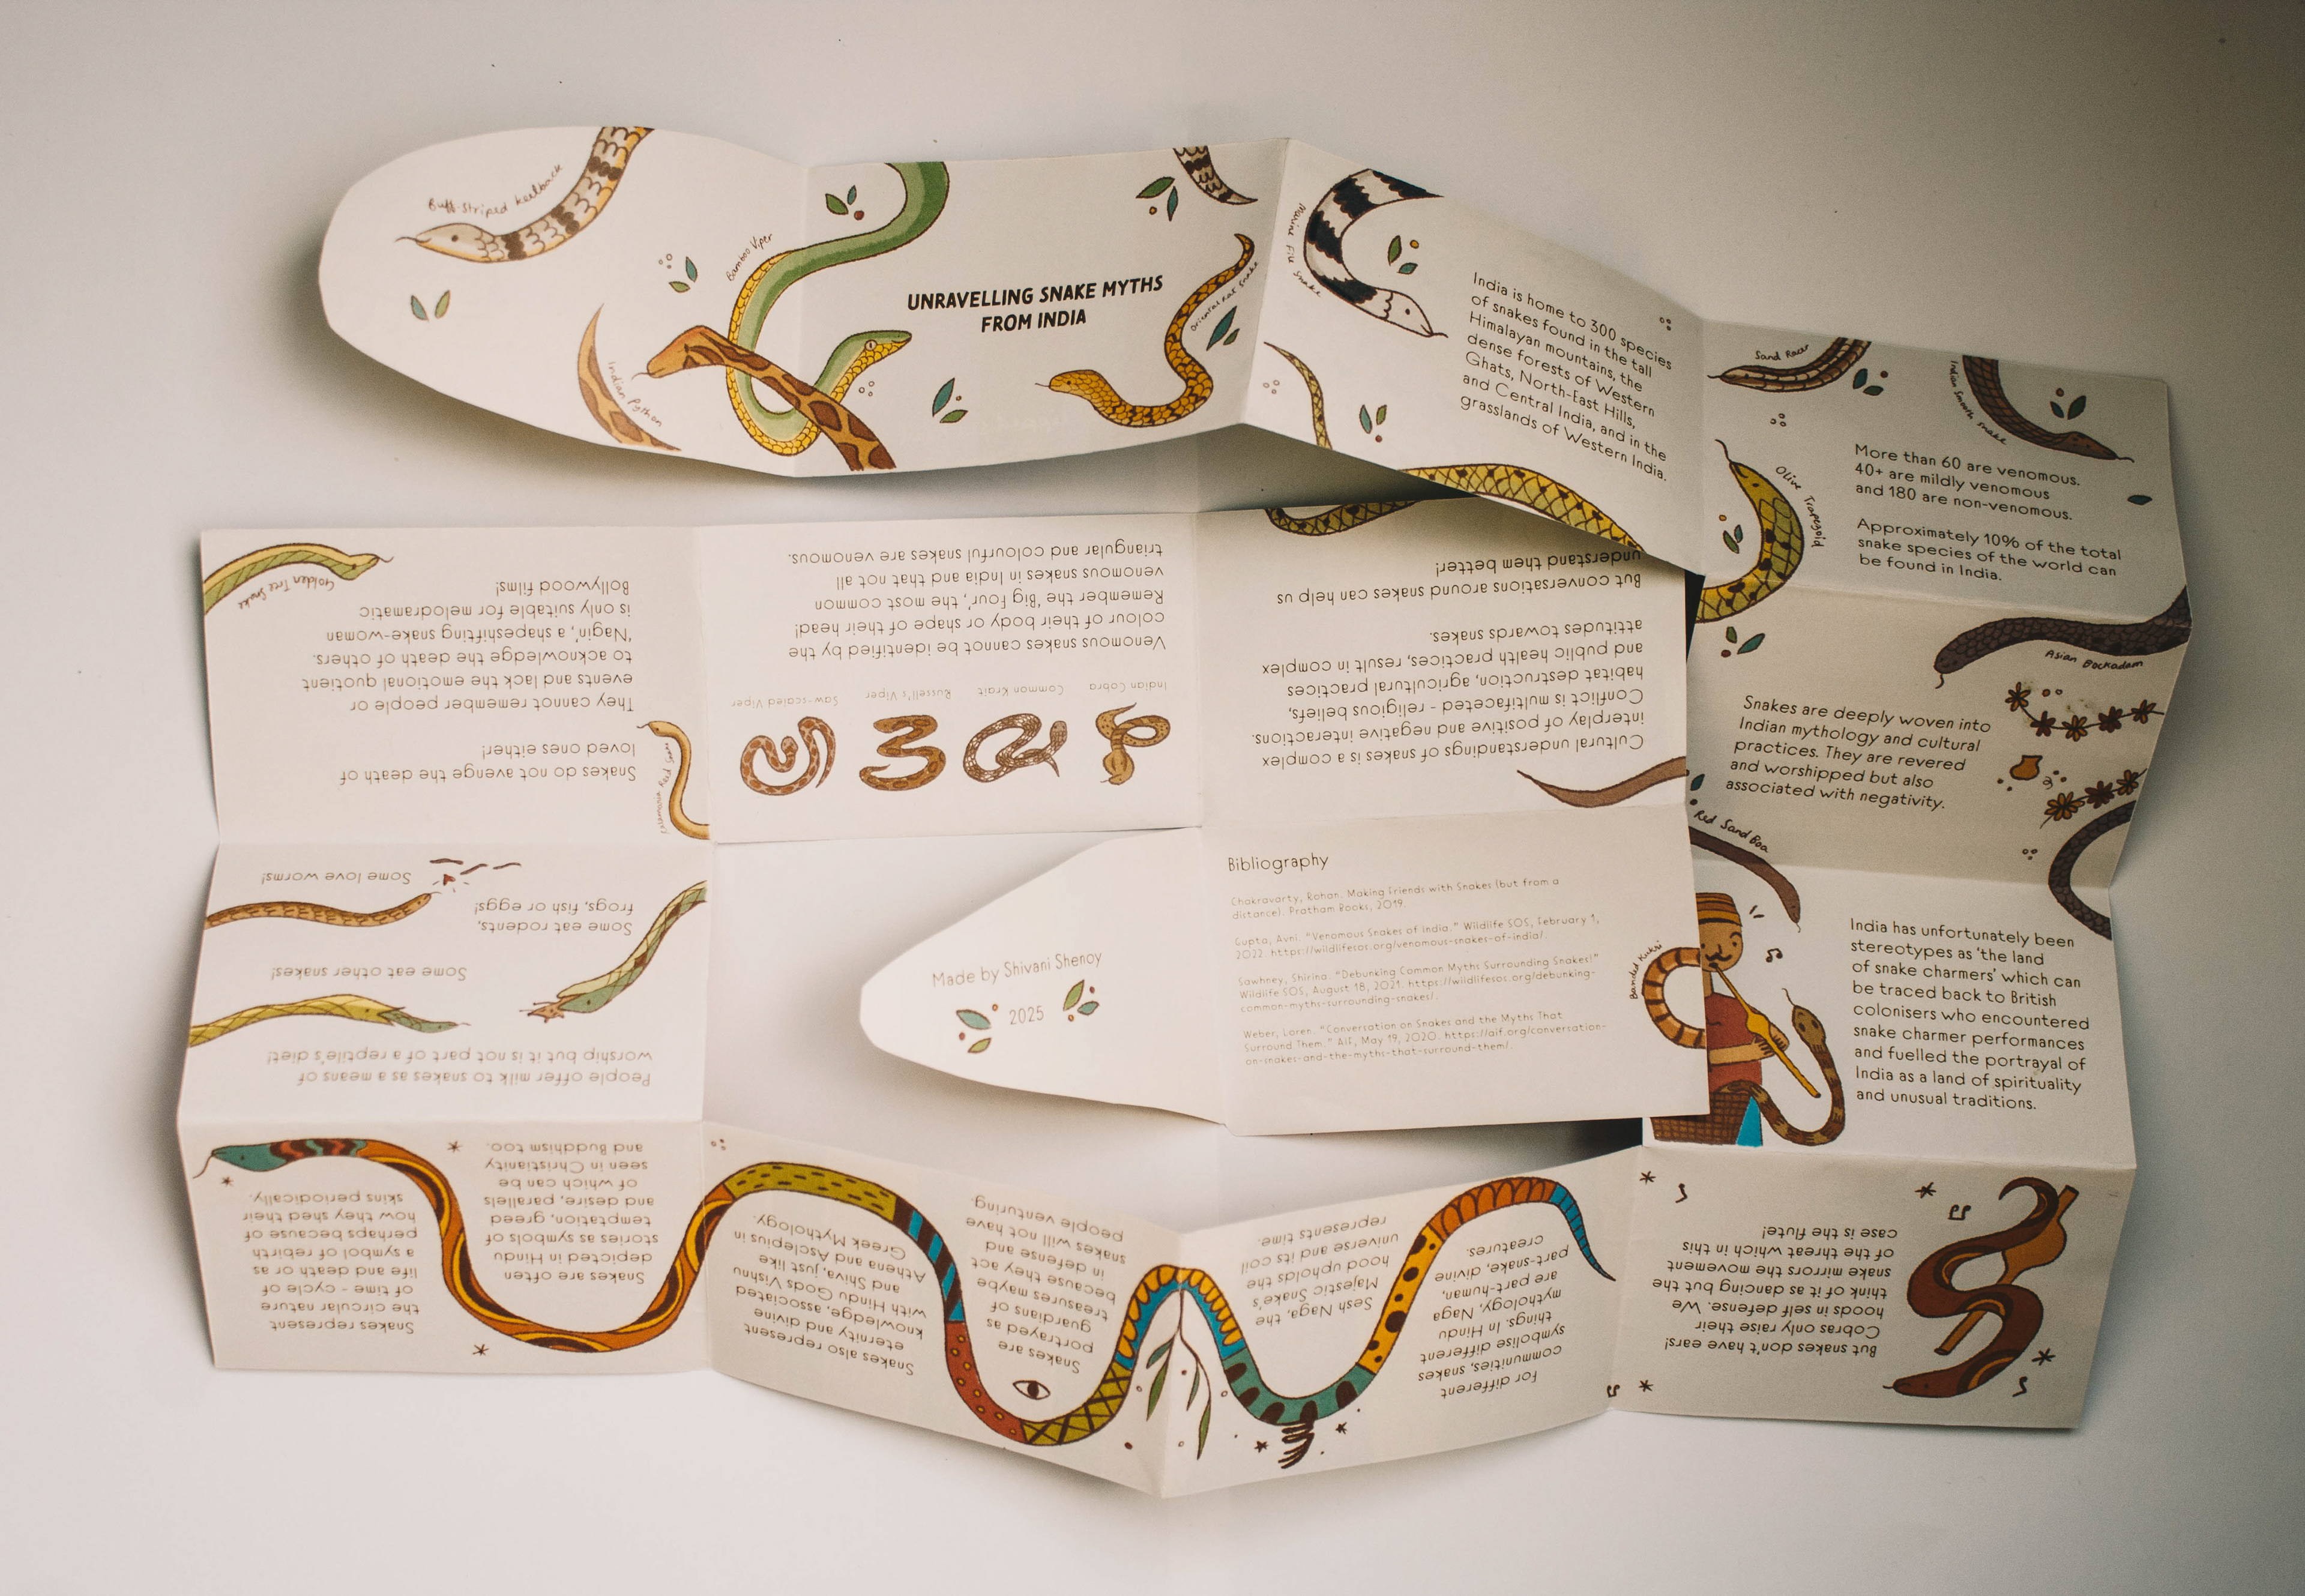 Buff-Striped Keelback
Bamboo Viper
Indian Python
UNRAVELLING SNAKE MYTHS
FROM INDIA
Oriental Rat Snake
Marine File Snake
India is home to 300 species
of snakes found in the tall
Himalayan mountains, the
dense forests of Western
Ghats, North-East Hills,
and Central India, and in the
grasslands of Western India.
Sand Racer
Indian Smooth Snake
Olive Trapezoid
More than 60 are venomous.
40+ are mildly venomous
and 180 are non-venomous.
Approximately 10% of the total
snake species of the world can
be found in India.
Asian Bockadam
Snakes are deeply woven into
Indian mythology and cultural
practices. They are revered
and worshipped but also
associated with negativity.
Red Sand Boa
Banded Kukri
India has unfortunately been
stereotypes as 'the land
of snake charmers' which can
be traced back to British
colonisers who encountered
snake charmer performances
and fuelled the portrayal of
India as a land of spirituality
and unusual traditions.
But snakes don't have ears!
Cobras only raise their
hoods in self defense. We
think of it as dancing but the
snake mirrors the movement
of the threat which in this
case is the flute!
For different
communities, snakes
symbolise different
things. In Hindu
mythology, Naga
are part-human,
part-snake, divine
creatures.
Sesh Naga, the
Majestic Snake's
hood upholds the
universe and its coil
represents time.
Snakes are
portrayed as
guardians of
treasures maybe
because they act
in defense and
snakes will not have
people venturing
Snakes also represent
eternity and divine
knowledge, associated
with Hindu Gods Vishnu
and Shiva, just like
Athena and Asclepius in
Greek Mythology.
Snakes are often
depicted in Hindu
stories as symbols of
temptation, greed
and desire, parallels
of which can be
seen in Christianity
and Buddhism too.
Snakes represent
the circular nature
of time - cycle of
life and death or as
a symbol of rebirth
perhaps because of
how they shed their
skins periodically.
People offer milk to snakes as a means of
worship but it is not part of a reptile's diet!
Some eat other snakes!
Some eat rodents,
frogs, fish or eggs!
Some love worms!
Snakes do not avenge the death of
loved ones either!
They cannot remember people or
events and lack the emotional quotient
to acknowledge the death of others.
'Nagin', a shapeshifting snake-woman
is only suitable for melodramatic
Bollywood films!
Calamaria Reed Snake
Golden Tree Snake
Indian Cobra
Common Krait
Russell's Viper
Saw-scaled Viper
Venomous snakes cannot be identified by the
colour of their body or shape of their head!
Remember the 'Big Four', the most common
venomous snakes in India and that not all
triangular and colourful snakes are venomous.
Cultural understandings of snakes is a complex
interplay of positive and negative interactions.
Conflict is multifaceted - religious beliefs,
habitat destruction, agricultural practices
and public health practices, result in complex
attitudes towards snakes.
But conversations around snakes can help us
understand them better!
Bibliography
Chakravarty, Rohan. Making Friends with Snakes (but from a
distance). Pratham Books, 2019.
Gupta, Avni. "Venomous Snakes of India." Wildlife SOS, February 1,
2022. https://wildlifesos.org/venomous-snakes-of-india/.
Sawhney, Shirina. "Debunking Common Myths Surrounding Snakes!"
Wildlife SOS, August 18, 2021. https://wildlifesos.org/debunking-
common-myths-surrounding-snakes/.
Weber, Loren. "Conversation on Snakes and the Myths That
Surround Them." AIF, May 19, 2020. https://aif.org/conversation-
on-snakes-and-the-myths-that-surround-them/.
Made by Shivani Shenoy
2025